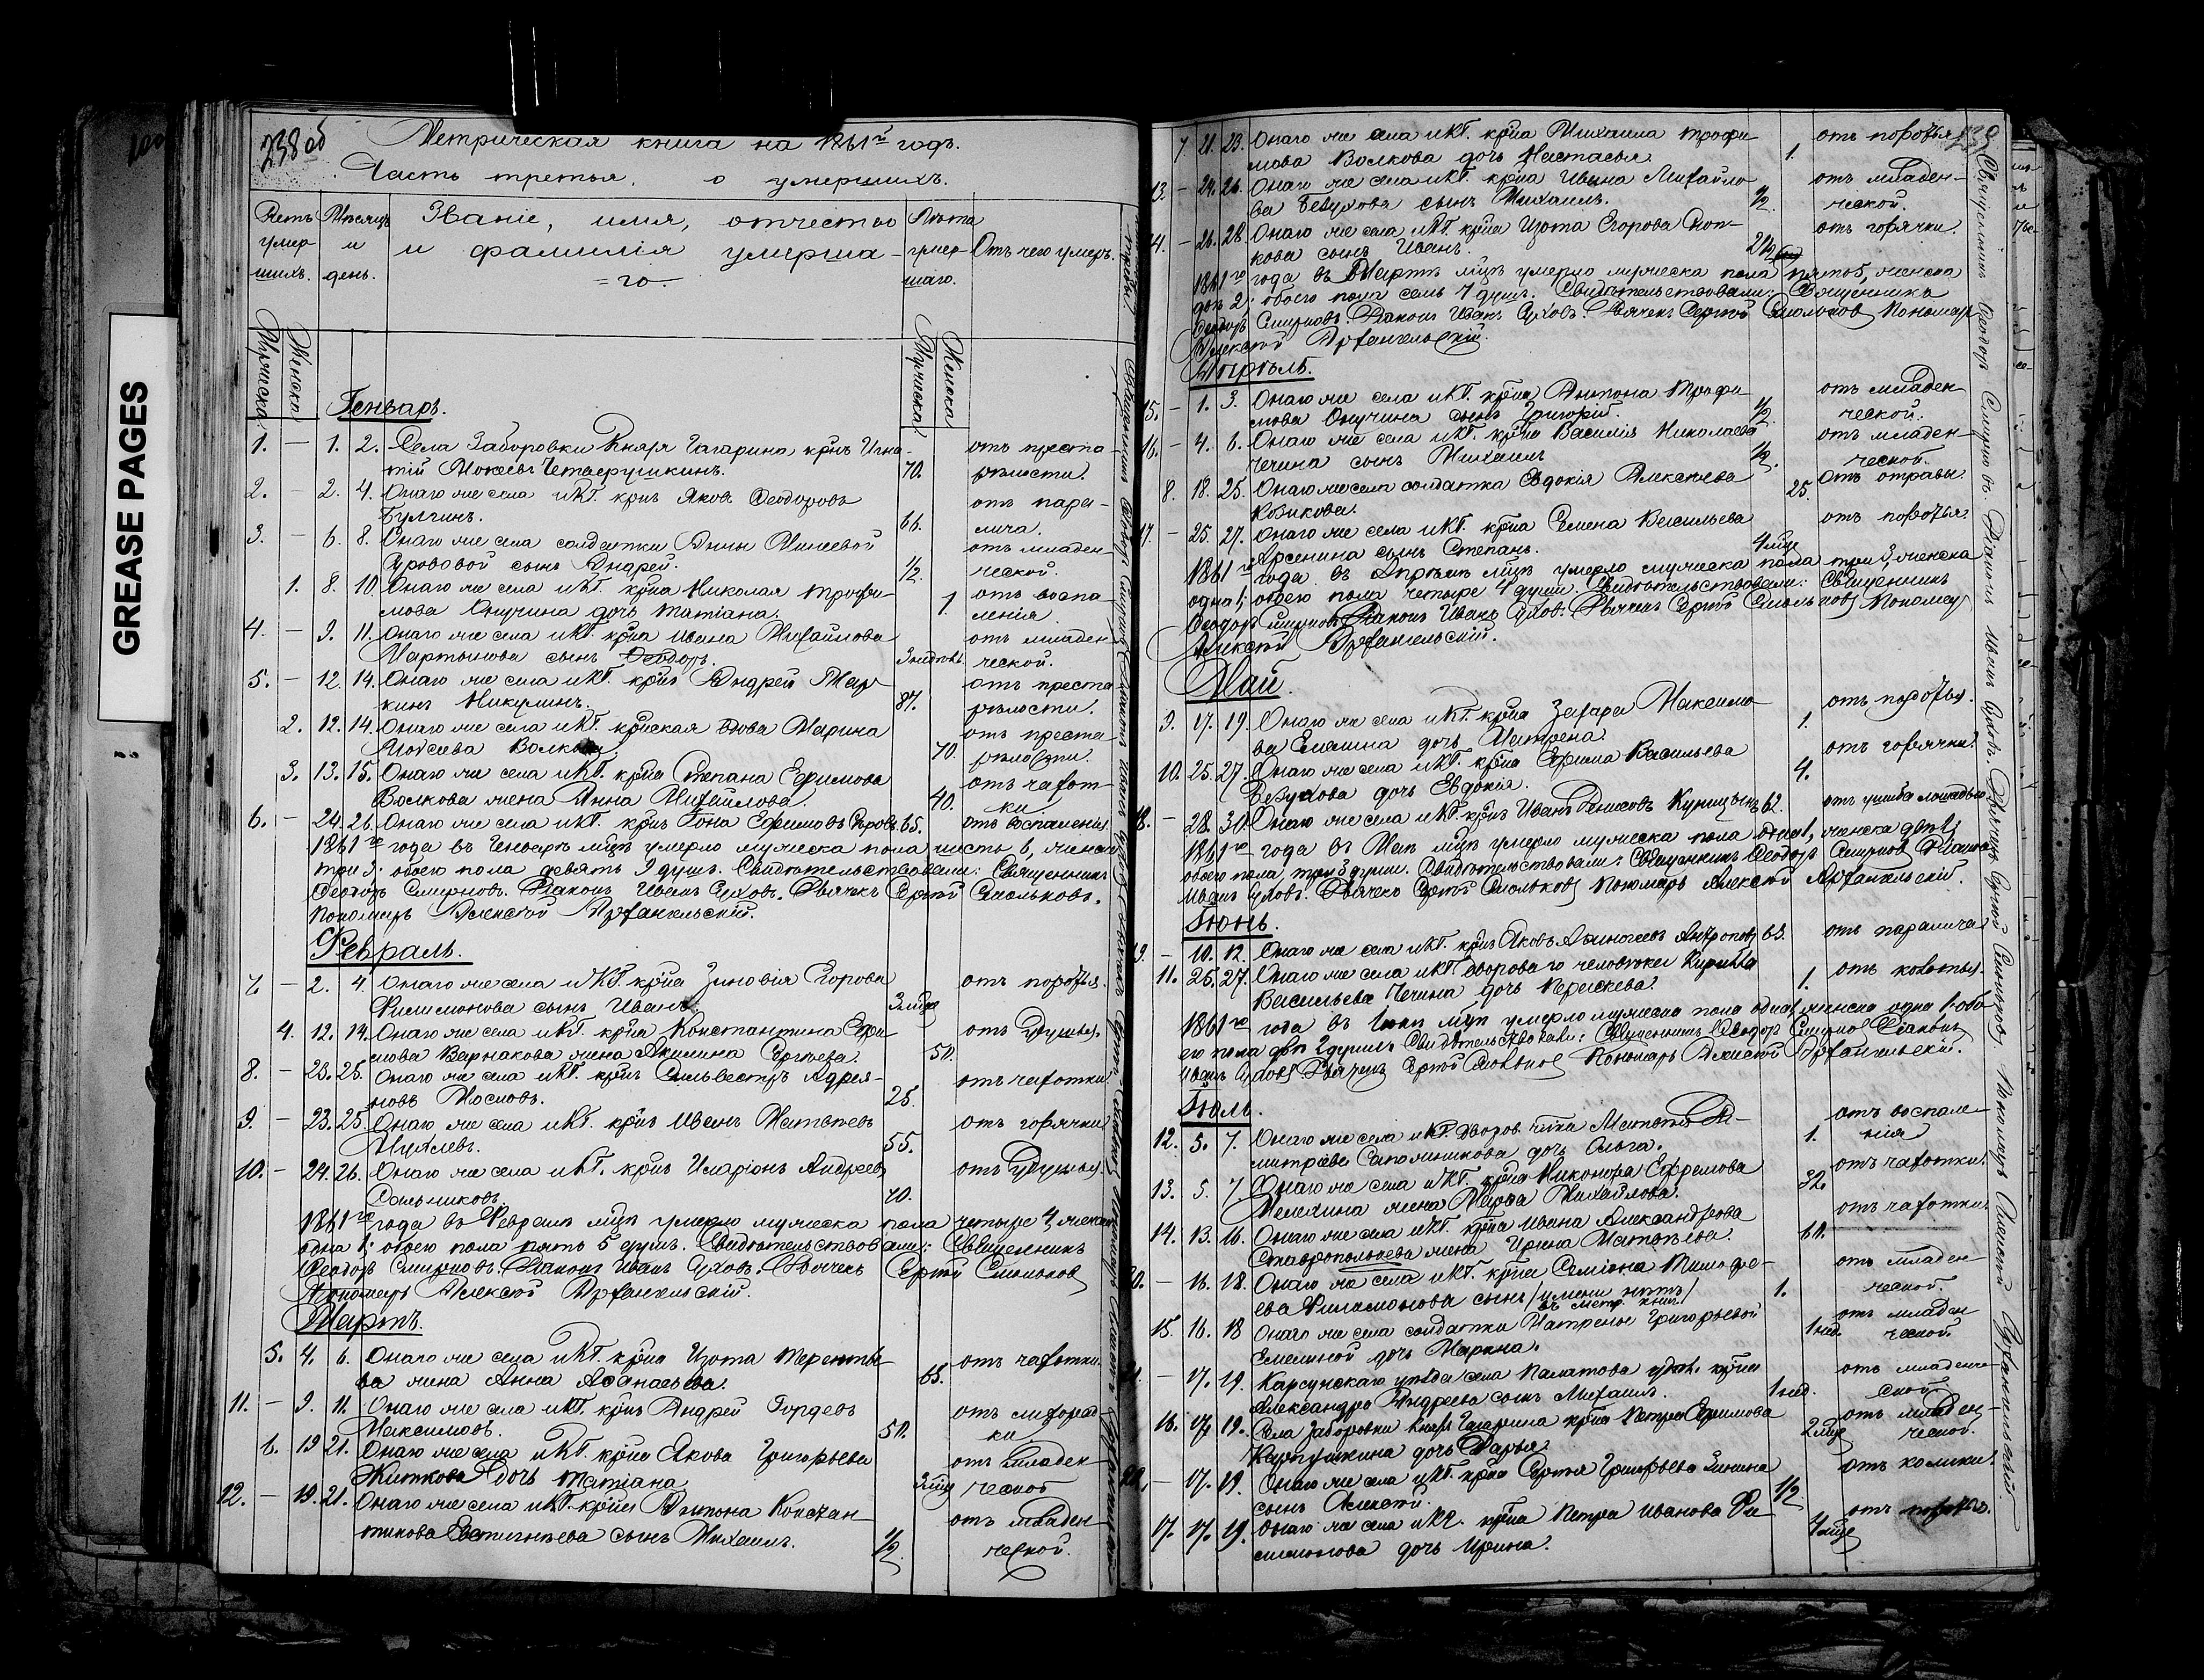 GREASE PAGES
238 об
Метрическая книга на 1861й годъ.
Часть третья. о умершихъ.
Мѣсяцъ и день.
Званіе, имя, отчество и фамилія умерша=го.
Лѣта умершаго.
Отъ чего умеръ.
Мужеска
Женска
Мужеска
Женска
Генварь.
1. — 1. 2. Села Заборовки Князя Гагарина крнъ Игна-
тій Мокеевъ Четверушкинъ. 70. отъ преста-
рѣлости.
2. — 2. 4. Онаго же села и КГ. крнъ Яковъ Ѳеодоровъ
Булгинъ. 66. отъ пара-
лича.
3. — 6. 8. Онаго же села солдатки Анны Минеевой
сынъ Андрей. 1/2. отъ младен-
ческой.
1. 8. 10. Онаго же села и КГ. крна Николая Трофи-
мова Онучина дочь Татіана. 1. отъ воспа-
ленія.
4. — 9. 11. Онаго же села и КГ. крна Ивана Михайлова
Мартынова сынъ Ѳеодоръ. 3 недѣль отъ младен-
ческой.
5. — 12. 14. Онаго же села и КГ. крнъ Андрей Мар
кинъ Никулинъ. 87. отъ преста
рѣлости.
2. 12. 14. Онаго же села и КГ. крнская вдова Марина
Моисеева Волкова 70. отъ преста
рѣлости.
3. 13. 15. Онаго же села и КГ. крна Степана Ефимова
Волкова жена Анна Михайлова. 40. отъ чахот-
ки
6. — 24. 26. Онаго же села и КГ. крнъ Іона Ефимовъ 65. отъ воспаленія
1861го года въ Генварѣ мцѣ умерло мужеска пола шесть 6, женска
три 3; обоего пола девять 9 душъ. Свидѣтельствовали: Священникъ
Ѳеодоръ Смирновъ. Діаконъ Иванъ Суховъ. Дьячекъ Сергѣй Смольковъ.
Пономарь Алексѣй Архангельскій.
Февраль.
7. — 2. 4. Онаго же села и КГ. крна Зиновія Егорова
Филимонова сынъ Иванъ. отъ поротья.
4. 12. 14. Онаго же села и КГ. крна Константина Ефи-
мова Варнакова жена Акилина Сергѣева. 50. отъ удушья.
8. — 23. 25. Онаго же села и КГ. крнъ Сильвестръ Адрея-
новъ Мословъ. 25. отъ чахотки
9. — 23. 25. Онаго же села и КГ. крнъ Иванъ Матвѣевъ
55. отъ горячки
10. — 24. 26. Онаго же села и КГ. крнъ Иларіонъ Андреевъ
70. отъ удушья.
1861го года въ Февралѣ мцѣ умерло мужеска пола четыре 4, женска
одна 1; обоего пола пять 5 душъ. Свидѣтельствовали: Священникъ
Ѳеодоръ Смирновъ. Діаконъ Иванъ Суховъ. Дьячекъ Сергѣй Смольковъ
Пономарь Алексѣй Архангельскій.
Мартъ.
5. 4. 6. Онаго же села и КГ. крна Изота Теренть-
ва жена Анна Аѳанасьева. 65. отъ чахотки.
11. — 9. 11. Онаго же села и КГ. крнъ Андрей Гордеевъ
Максимовъ. 50. отъ лихорад
ки
6. 19 21. Онаго же села и КГ. крна Якова Григорьева
Житкова дочь Татіана 3 мцъ отъ младен
ческой
12. — 19. 21. Онаго же села и КГ. крна Антона Констан
тинова Евстигнѣева сынъ Михаилъ. 1/2. отъ младен
ческой.
239
7. 21. 23. Онаго же села и КГ. крна Михаила Трофи
мова Волкова дочь Настасья. 1. отъ поротья
13. — 24. 26. Онаго же села и КГ. крна Ивана Михайло
ва Безухова сынъ Михаилъ. 1/2. отъ младен-
ческой.
14. — 26. 28. Онаго же села и КГ. крна Изота Егорова
кова сынъ Иванъ. отъ горячки.
1861го года въ Мартѣ мцѣ умерло мужеска пола пять 5, женска
двѣ 2; обоего пола семь 7 душъ. Свидѣтельствовали: Священникъ
Ѳеодоръ Смирновъ. Діаконъ Иванъ Суховъ. Дьячекъ Сергѣй Смольковъ Пономарь
Алексѣй Архангельскій.
Апрѣль.
15. — 1. 3. Онаго же села и КГ. крна Антона Трофи-
мова Онучина сынъ Григорій. 1/2. отъ младен
ческой.
16. — 4. 6. Онаго же села и КГ. крна Василія Николаева
Чечина сынъ Михаилъ 1/2. отъ младен-
ческой.
8. 18. 25. Онаго же села солдатка Евдокія Алексѣева
Козикова. 25. Отъ отравы.
17. — 25. 27. Онаго же села и КГ. крна Семена Васильева
Арсенина сынъ Степанъ. 4 мце отъ поротья.
1861го года въ Апрѣлѣ мцѣ умерло мужеска пола три 3, женска
одна 1; обоего пола четыре 4 души. Свидѣтельствовали: Священникъ
Ѳеодоръ Смирновъ Діаконъ Иванъ Суховъ. Дьячекъ Сергѣй Смольковъ Пономарь
Алексѣй Архангельскій.
Май.
9. 17. 19. Онаго же села и КГ. крна Захара Максимо
ва Елашина дочь Матрена. 1. отъ поротья.
10. 25. 27. Онаго же села и КГ. крна Ефима Васильева
Безухова дочь Евдокія. 4. отъ горячки.
18. — 28. 30. Онаго же села и КГ. крнъ Иванъ Денисовъ Куницынъ 62. отъ ушиба лошадью
1861го года въ Маѣ мцѣ умерло мужеска пола одна 1, женска двѣ 2;
обоего пола три 3 души. Свидѣтельствовали: Священникъ Ѳеодоръ Смирновъ Діаконъ
Иванъ Суховъ. Дьячекъ Сергѣй Смольковъ Пономарь Алексѣй Архангельскій.
Іюнь.
19. — 10. 12. Онаго же села и КГ. крнъ Яковъ Антроповъ 63. отъ паралича
11. 25. 27. Онаго же села и КГ. двороваго человѣка Кирилла
Васильева Чечина дочь Пелагѣева. 1. отъ колотья.
1861го года въ Іюнѣ мцѣ умерло мужеска пола одна 1, женска одна 1. обо-
его пола двѣ 2 души. Свидѣтельствовали: Священникъ Ѳеодоръ Смирновъ Діаконъ
Иванъ Суховъ Дьячекъ Сергѣй Смольковъ Пономарь Алексѣй Архангельскій.
Іюль.
12. 5. 7. Онаго же села и КГ. дворов. члка Матвѣя Д-
митріева Сапожникова дочь Ольга. 1. отъ воспале-
нія
13. 5. 7 Онаго же села и КГ. крна Никонора Ефремова
Мелехина жена Михайлова. 32. отъ чахотки.
14. 13. 16. Онаго же села и КГ. крна Ивана Александрова
Ставропольцева жена Ирина Матвѣева. 60. отъ чахотки
20. — 16. 18. Онаго же села и КГ. крна Семіона Тимофе-
ева Филимонова сынъ /имени нѣтъ
въ метр. книг./ 1. отъ младен
ческой.
15. 16. 18 Онаго же села солдатки Матрены Григорьевой
Емелиной дочь Марина. 1 нед. отъ младен
ческой
— 17. 19. Карсунскаго уѣзда села Палатова удѣл. крна
Александра Андреева сынъ Михаилъ. 1 нед. отъ младенче-
ской
16. 17. 19. Села Заборовки Князя Гагарина крна Петра Ефимова
дочь Дарья. 2 мце отъ младен-
ческой.
— 17. 19. Онаго же села и КГ. крна Сергѣя Григорьева Зинина
сынъ Алексѣй. 1/2 отъ колики.
17. 17. 19. Онаго же села и КГ. крна Петра Иванова Фи
лимонова дочь Ирина. 4 мце отъ
Священникъ Ѳеодоръ Смирновъ. Діаконъ Иванъ Суховъ. Дьячекъ Сергѣй Смольковъ Пономарь Алексѣй Архангельскій.